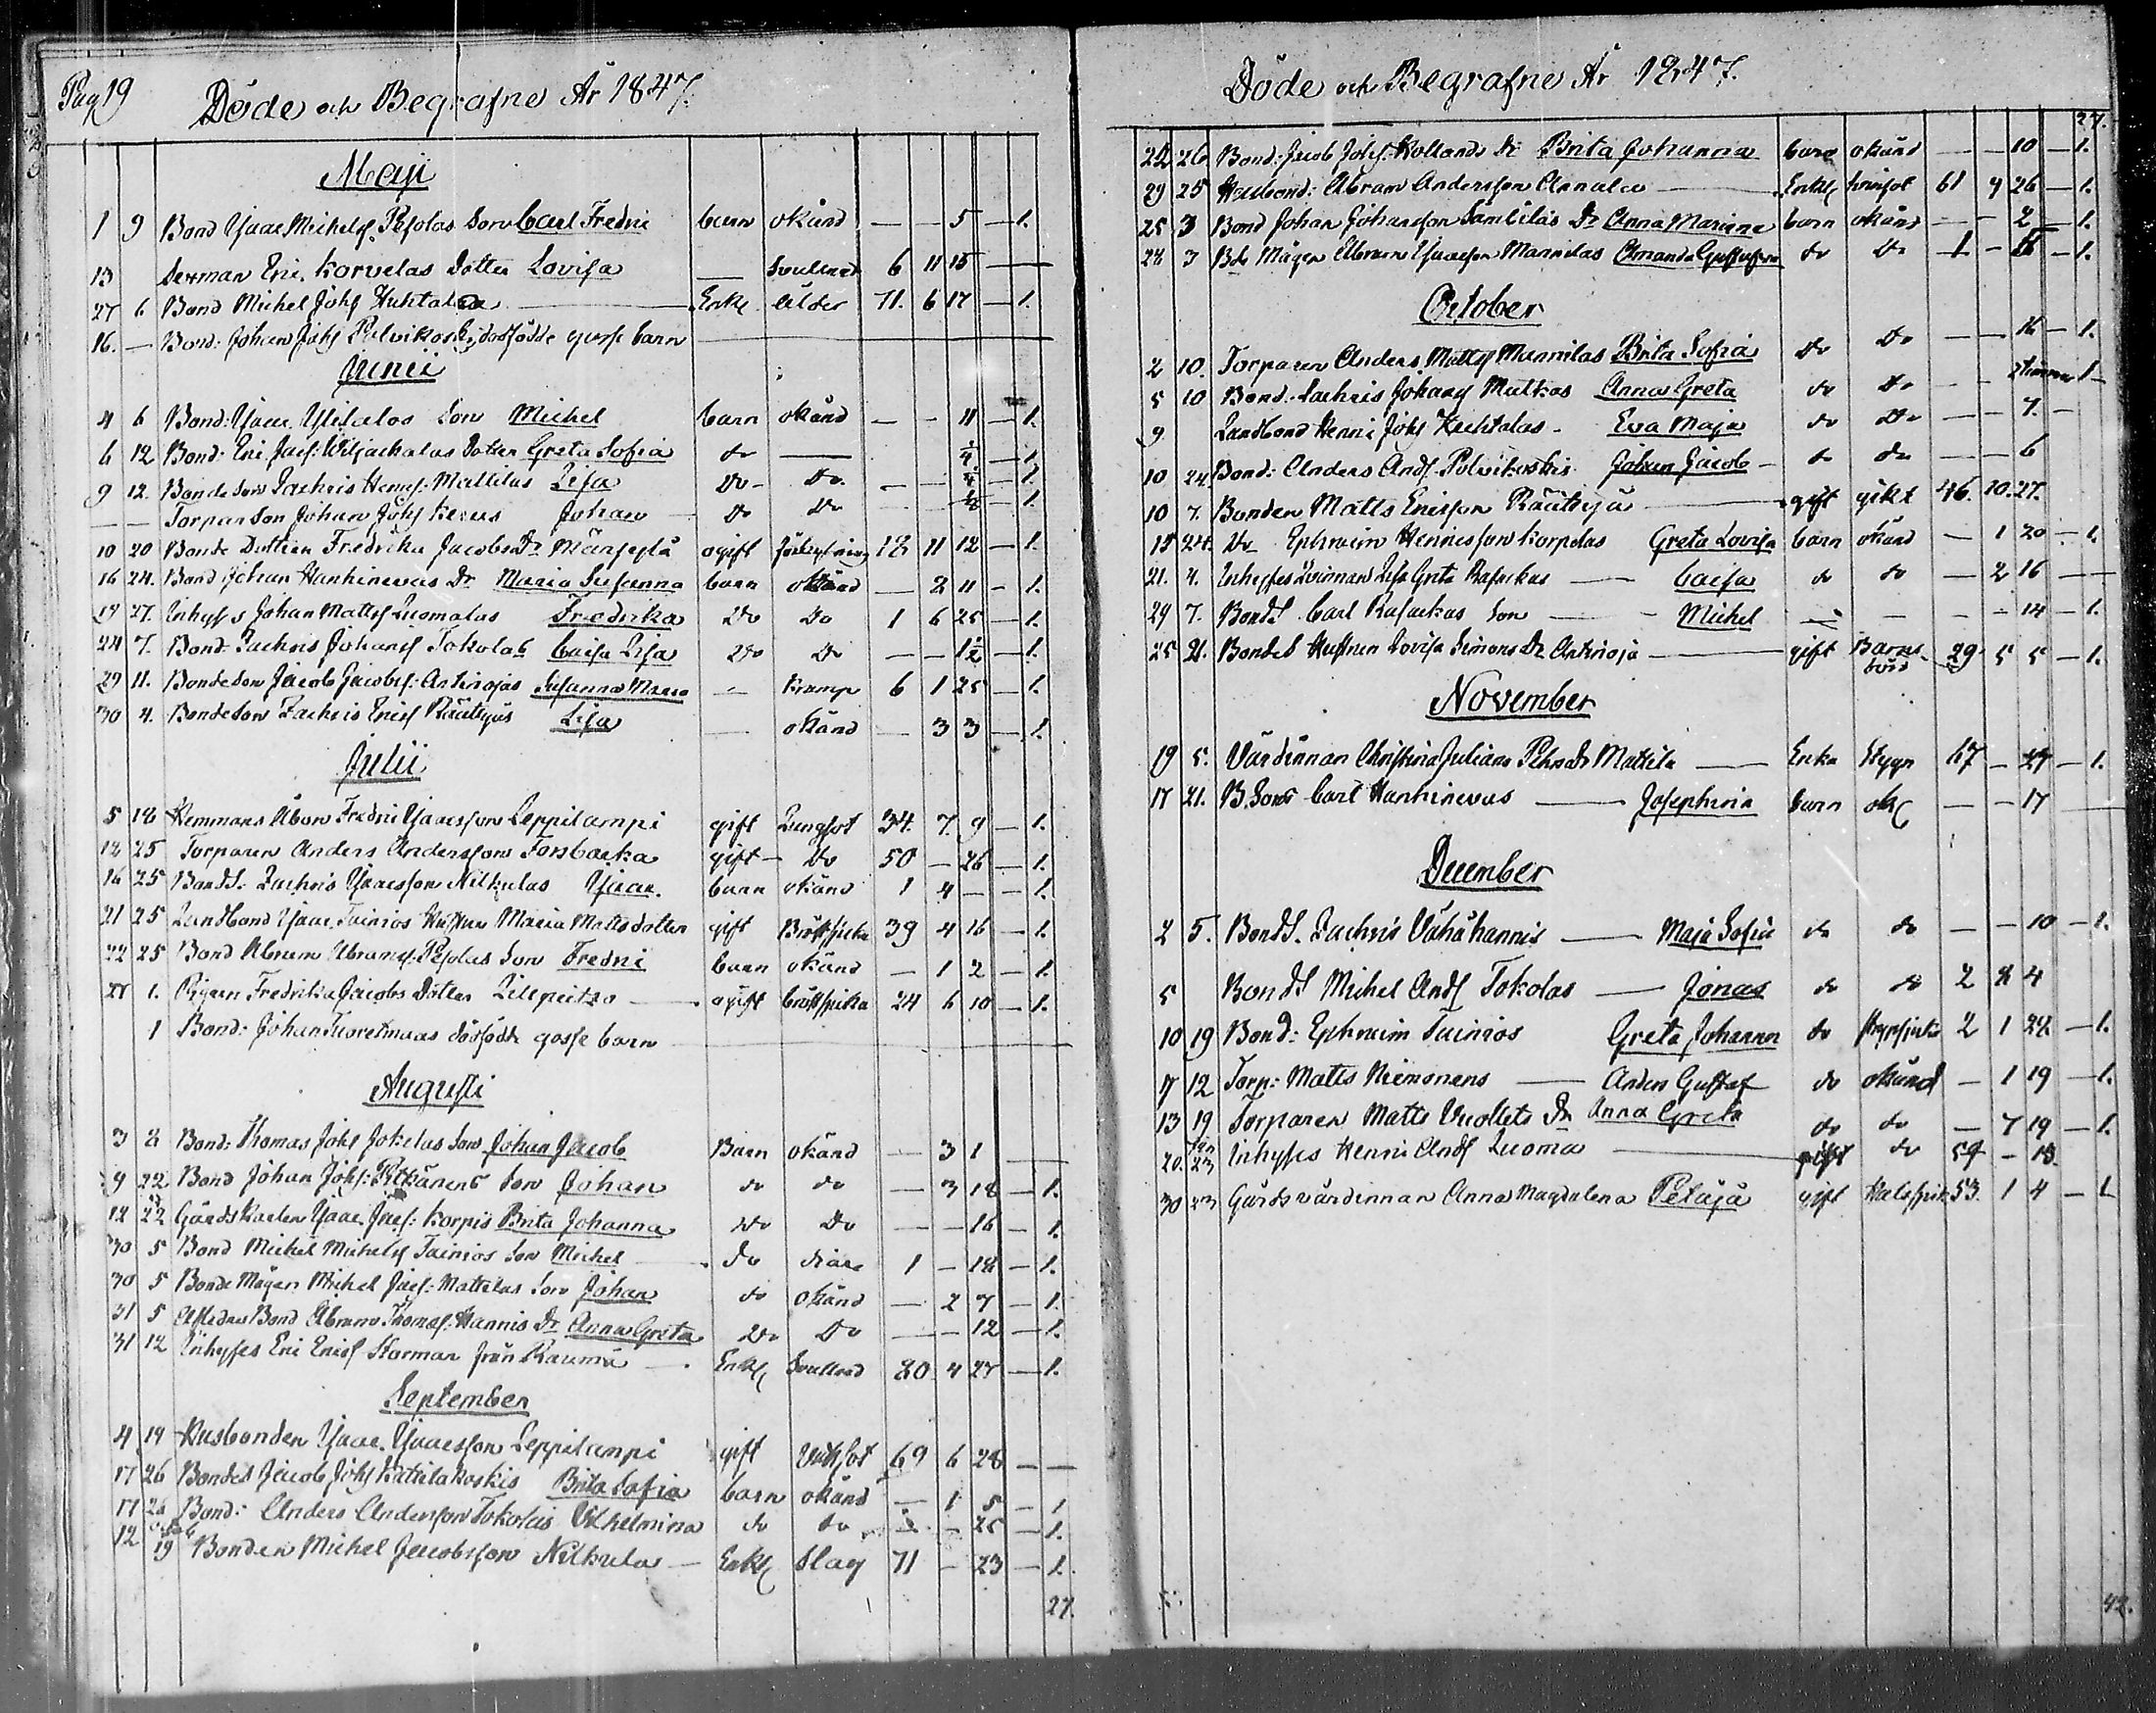 Pag 19
Döde och Begrafne År 1847.
Maji
1 9 Bond Isaac Michelss. Pesolas Son Carl Fredric barn okänd — — 5 — 1.
13 Sexman Eric Korvelas Dotter Lovisa — Svullnad 6 11 15 —
27 6 Bond Michel Johss Huhtala — Enkl ålder 71. 6 17 — 1.
16. — Bond: Johan Johss Polvikoskis dödfödde gosse barn
Junii
4 6 Bond: Isaac Ylitalos Son Michel barn okänd — — 11 — 1.
6 12 Bond: Eric Jacss: Viljackalas Dotter Greta Sofia do — 1/4 — 1
9 12. Bonde Son Zachris Henrss. Mattilas Lisa Do Do. — — 1/4 — 1.
— — Torpar Son Johan Johss Johan Do Do — 1.
10 20 Bonde Dottren Fredrika Jacobs Dr Märsylä ogift 18 11 12 — 1.
16 24. Bond Johan Hanhinevas Dr Maria Susanna barn okänd — 2 11 — 1.
19 27. Inhyses Johan Mattss Luomalas Fredrika Do Do 1 6 25 — 1.
24 7. Bond Zachris Johanss Tokolas Caisa Lisa Do Do — — 1 1/2 — 1.
29 11. Bonde Son Jacob Jacobss: Antinojas Susanna Maria — Kramp 6 1 25 — 1.
30 4. Bonde Son Zachris Ericss Räutyjäs Lisa — okänd — 3 3 — 1.
Julii
5 18 Hemmans Åbon Fredric Isaacsson Leppilampi gift Lungsot 34. 7. 9 — 1.
12 25 Torparen Anders Andersson Forsbacka gift — Do 50 — 26 — 1.
16 25 BondS. Zachris Isaacsson Nilkulas Isaac. barn okänd 1 4 — — 1.
21 25 Landbond Isaac Tainios Hustru Maria Matts dotter gift Bröstsjuka 39 4 16 — 1.
22 25 Bond Abram Abramss. Pesolas Son Fredric barn okänd — 1 2 — 1.
27 1. Pigan Fredrika Jacobs Dotter ogift bröstsjuka 24 6 10 — 1.
1 Bond: Johan Tuoretmaas dödfödde gosse barn
Augusti
3 8 Bond: Thomas Johss Jokelas Son Johan Jacob Barn okänd — 3 1
9 22 Bond Johan Johss: Pitkänens Son Johan do do — 3 18 — 1.
12 22 Gårdskarlen Isaac Jacss: Korpis Brita Johanna Do Do — — 16 — 1.
30 5 Bond Michel Michelss Tainios Son Michel Do diare 1 — 18 — 1.
30 5 Bonde Mågen Michel Jacss: Mattilas Son Johan do okänd — 2 7 — 1.
31 5 Afledne Bond Abram Thomass. Hannis Dr Anna Greta Do Do — — 12 — 1.
31 12 Inhyses Eric Ericss Storman från Rauma — Enkl Svullnad 80 4 27 — 1.
September
4 19 Husbonden Isaac Isaacsson Leppilampi gift 69 6 28 — —
17 26 BondeS Jacob Johss Kattilakoskis Brita Sofia barn okänd — 1 5 — 1
17 26 Bond: Anders Andersson Tokolas Vilhelmina do do — — 25 — 1.
12 19 Bonden Michel Jacobsson Nilkula — Enkl Slag 71 — 23 — 1.
27.
Döde och Begrafne År 1847.
27.
22 26 Bond: Jacob Johss: Kollands Dr Brita Johanna barn okänd — — 10 — 1.
29 25 Husbond: Abram Andersson Annala — Enkl 61 9 26 — 1.
25 3 Bond Johan Johansson Dr Anna Mariana barn okänd — — 2 — 1.
28 3 Bde Mågen Abram Isaacson Mannilas Amanda Gustafva do Do 1 — — 1.
October
2 10. Torparen Anders Mattss Mannilas Brita Sofia Do Do — — 16 — 1.
5 10 Bond. Zachris Johanss Matkas Anna Greta do Do — — 1
9 Landbond Henric Johss Huhtalas — Eva Maja do Do — — 7. —
10 24. Bond: Anders Andss Polvikoskis Johan Jacob — do do — — 6
10 7. Bonden Matts Ericsson Räutyjä — gift gikt 46. 10. 27.
15 24. Do Ephraim Henricsson Korpelas Greta Lovisa barn okänd — 1 20 — 1.
21. 4. Inhyses Qvinnan Lisa Greta Rasackas — Caisa do do — 2 16 —
29 7. BondS Carl Rasackas Son — Michel — — — 14 — 1.
25 21. BondeS Hustrun Lovisa Simons Dr Antinoja — gift Barns börd 29 5 5 — 1.
November
19 5. Värdinnan Christina Juliana Pehrs Dr Mattila — Enka Stygn 67 — — 1.
17 21. B. Son Carl Hanhinevas — Josephina barn ok — — 17
December
2 5. BondS. Zachris Vähähannis — Maja Sofia do do — — 10 — 1.
5 BondS Michel Andss Tokolas — Jonas do do 2 8 4
10 19 Bond: Ephraim Tainios Greta Johanna do 2 1 22 — 1.
17 12 Torp: Matts Niemonens — Anders Gustaf do okänd — 1 19 — 1.
13 19 Torparen Matts Vuollets Dr Anna Greta do do — 7 19 — 1.
20. Jan 23 Inhyses Henric Andss Luoma — gift do 59 — 18.
30 23 Gårdsvärdinnan Anna Magdalena Petäjä gift Halssjuk 53. 1 4 — 1
42.